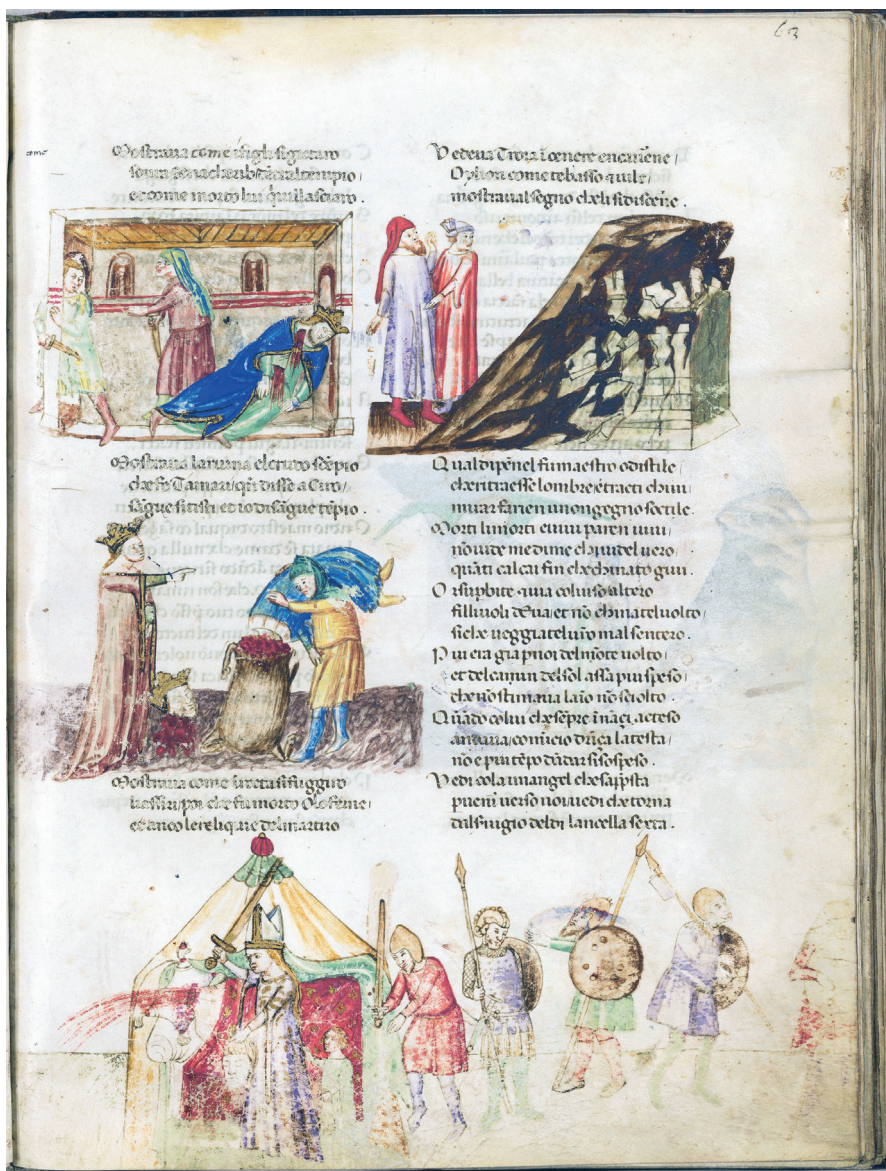 63
Mostraua come i figli si gittaro
soura
et come morto lui quiui lasciaro .
Mostraua la ruina el crudo
che fe Tamari / disse a Ciro /
sāgue sitisti et io di sāgue t ēpio .
Mostraua come i rota si fuggiro
li assiri / poi che fu morto Oloferne /
et anco le relique del martiro
Vedeua Troia ī cenere en cauerne /
O ylion come te basso
mostraua il segno che li si discerne .
Qual di pēnel fu maestro o di stile /
che ritraesse lombre
mirar farien uno ngegno sottile .
Morti li morti e i uiui paren uiui /
nō uide me di me chi uide l uero
quāti calcai fin che chinato giui .
Or superbite
filliuoli deua / et nō chinate l uolto /
si che ueggiate l uostro mal sentero .
Piu era gia per noi del mōte uolto /
et del camin del sol assai piu speso /
che nō stimaua laīo nō sciolto .
Quādo colui che sēpre ī nāçi acteso
andaua / comīcio driça la testa /
nō e piu tēpo dādar si sospeso .
Vedi cola un angel che
uenir uerso noi uedi che torna
dal seruigio del di lancella sexta .